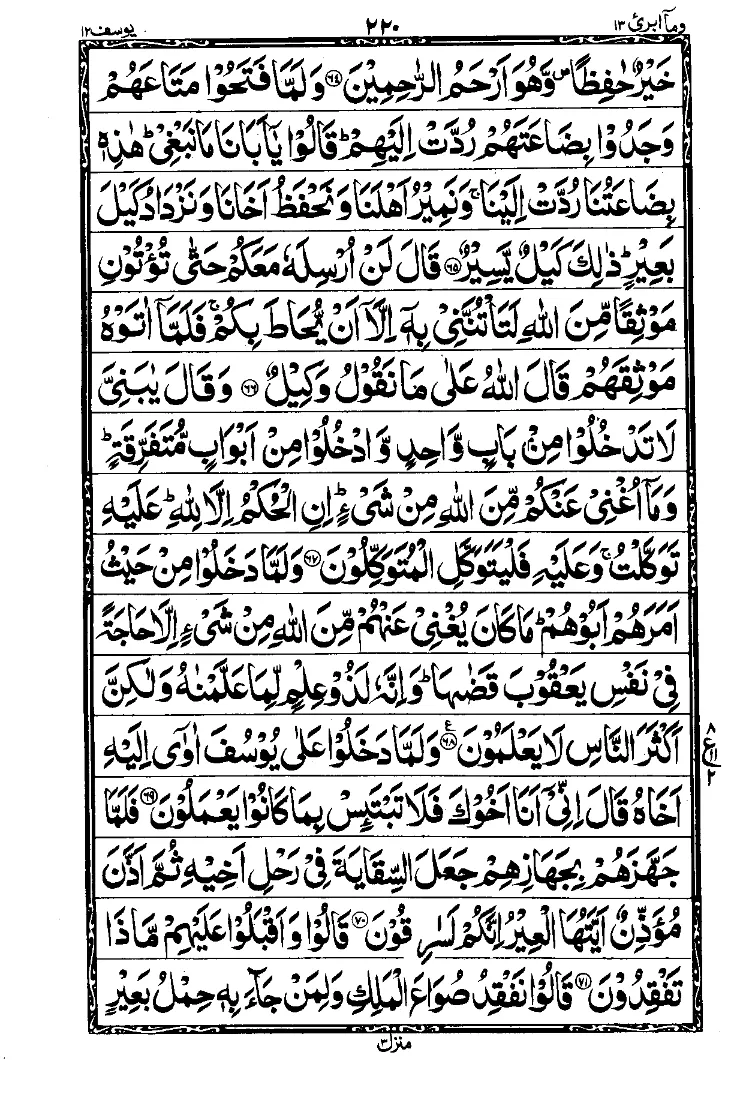 وما ابرئ ١٣
٢٢٠
يوسف ١٢
خَيْرٌ حٰفِظًا ۪ وَّهُوَ اَرْحَمُ الرّٰحِمِيْنَ ﴿۶۴﴾ وَلَمَّا فَتَحُوْا مَتَاعَهُمْ
وَجَدُوْا بِضَاعَتَهُمْ رُدَّتْ اِلَيْهِمْ ؕ قَالُوْا يٰۤاَبَانَا مَا نَبْغِیْ ؕ هٰذِهٖ
بِضَاعَتُنَا رُدَّتْ اِلَيْنَا ۚ وَنَمِيْرُ اَهْلَنَا وَنَحْفَظُ اَخَانَا وَنَزْدَادُ كَيْلَ
بَعِيْرٍ ؕ ذٰلِكَ كَيْلٌ يَّسِيْرٌ ﴿۶۵﴾ قَالَ لَنْ اُرْسِلَهٗ مَعَكُمْ حَتّٰی تُؤْتُوْنِ
مَوْثِقًا مِّنَ اللّٰهِ لَتَاْتُنَّنِیْ بِهٖۤ اِلَّاۤ اَنْ يُّحَاطَ بِكُمْ ۚ فَلَمَّاۤ اٰتَوْهُ
مَوْثِقَهُمْ قَالَ اللّٰهُ عَلٰی مَا نَقُوْلُ وَكِيْلٌ ﴿۶۶﴾ وَقَالَ يٰبَنِیَّ
لَا تَدْخُلُوْا مِنْۢ بَابٍ وَّاحِدٍ وَّادْخُلُوْا مِنْ اَبْوَابٍ مُّتَفَرِّقَةٍ ؕ
وَمَاۤ اُغْنِیْ عَنْكُمْ مِّنَ اللّٰهِ مِنْ شَیْءٍ ؕ اِنِ الْحُكْمُ اِلَّا لِلّٰهِ ؕ عَلَيْهِ
تَوَكَّلْتُ ۚ وَعَلَيْهِ فَلْيَتَوَكَّلِ الْمُتَوَكِّلُوْنَ ﴿۶۷﴾ وَلَمَّا دَخَلُوْا مِنْ حَيْثُ
اَمَرَهُمْ اَبُوْهُمْ ؕ مَا كَانَ يُغْنِیْ عَنْهُمْ مِّنَ اللّٰهِ مِنْ شَیْءٍ اِلَّا حَاجَةً
فِیْ نَفْسِ يَعْقُوْبَ قَضٰىهَا ؕ وَاِنَّهٗ لَذُوْ عِلْمٍ لِّمَا عَلَّمْنٰهُ وَلٰكِنَّ
اَكْثَرَ النَّاسِ لَا يَعْلَمُوْنَ ﴿۶۸﴾ ع وَلَمَّا دَخَلُوْا عَلٰی يُوْسُفَ اٰوٰۤی اِلَيْهِ
٨
ع ١١
٢
اَخَاهُ قَالَ اِنِّیْۤ اَنَا اَخُوْكَ فَلَا تَبْتَئِسْ بِمَا كَانُوْا يَعْمَلُوْنَ ﴿۶۹﴾ فَلَمَّا
جَهَّزَهُمْ بِجَهَازِهِمْ جَعَلَ السِّقَايَةَ فِیْ رَحْلِ اَخِيْهِ ثُمَّ اَذَّنَ
مُؤَذِّنٌ اَيَّتُهَا الْعِيْرُ اِنَّكُمْ لَسٰرِقُوْنَ ﴿۷۰﴾ قَالُوْا وَاَقْبَلُوْا عَلَيْهِمْ مَّاذَا
تَفْقِدُوْنَ ﴿۷۱﴾ قَالُوْا نَفْقِدُ صُوَاعَ الْمَلِكِ وَلِمَنْ جَآءَ بِهٖ حِمْلُ بَعِيْرٍ
منزل ٣